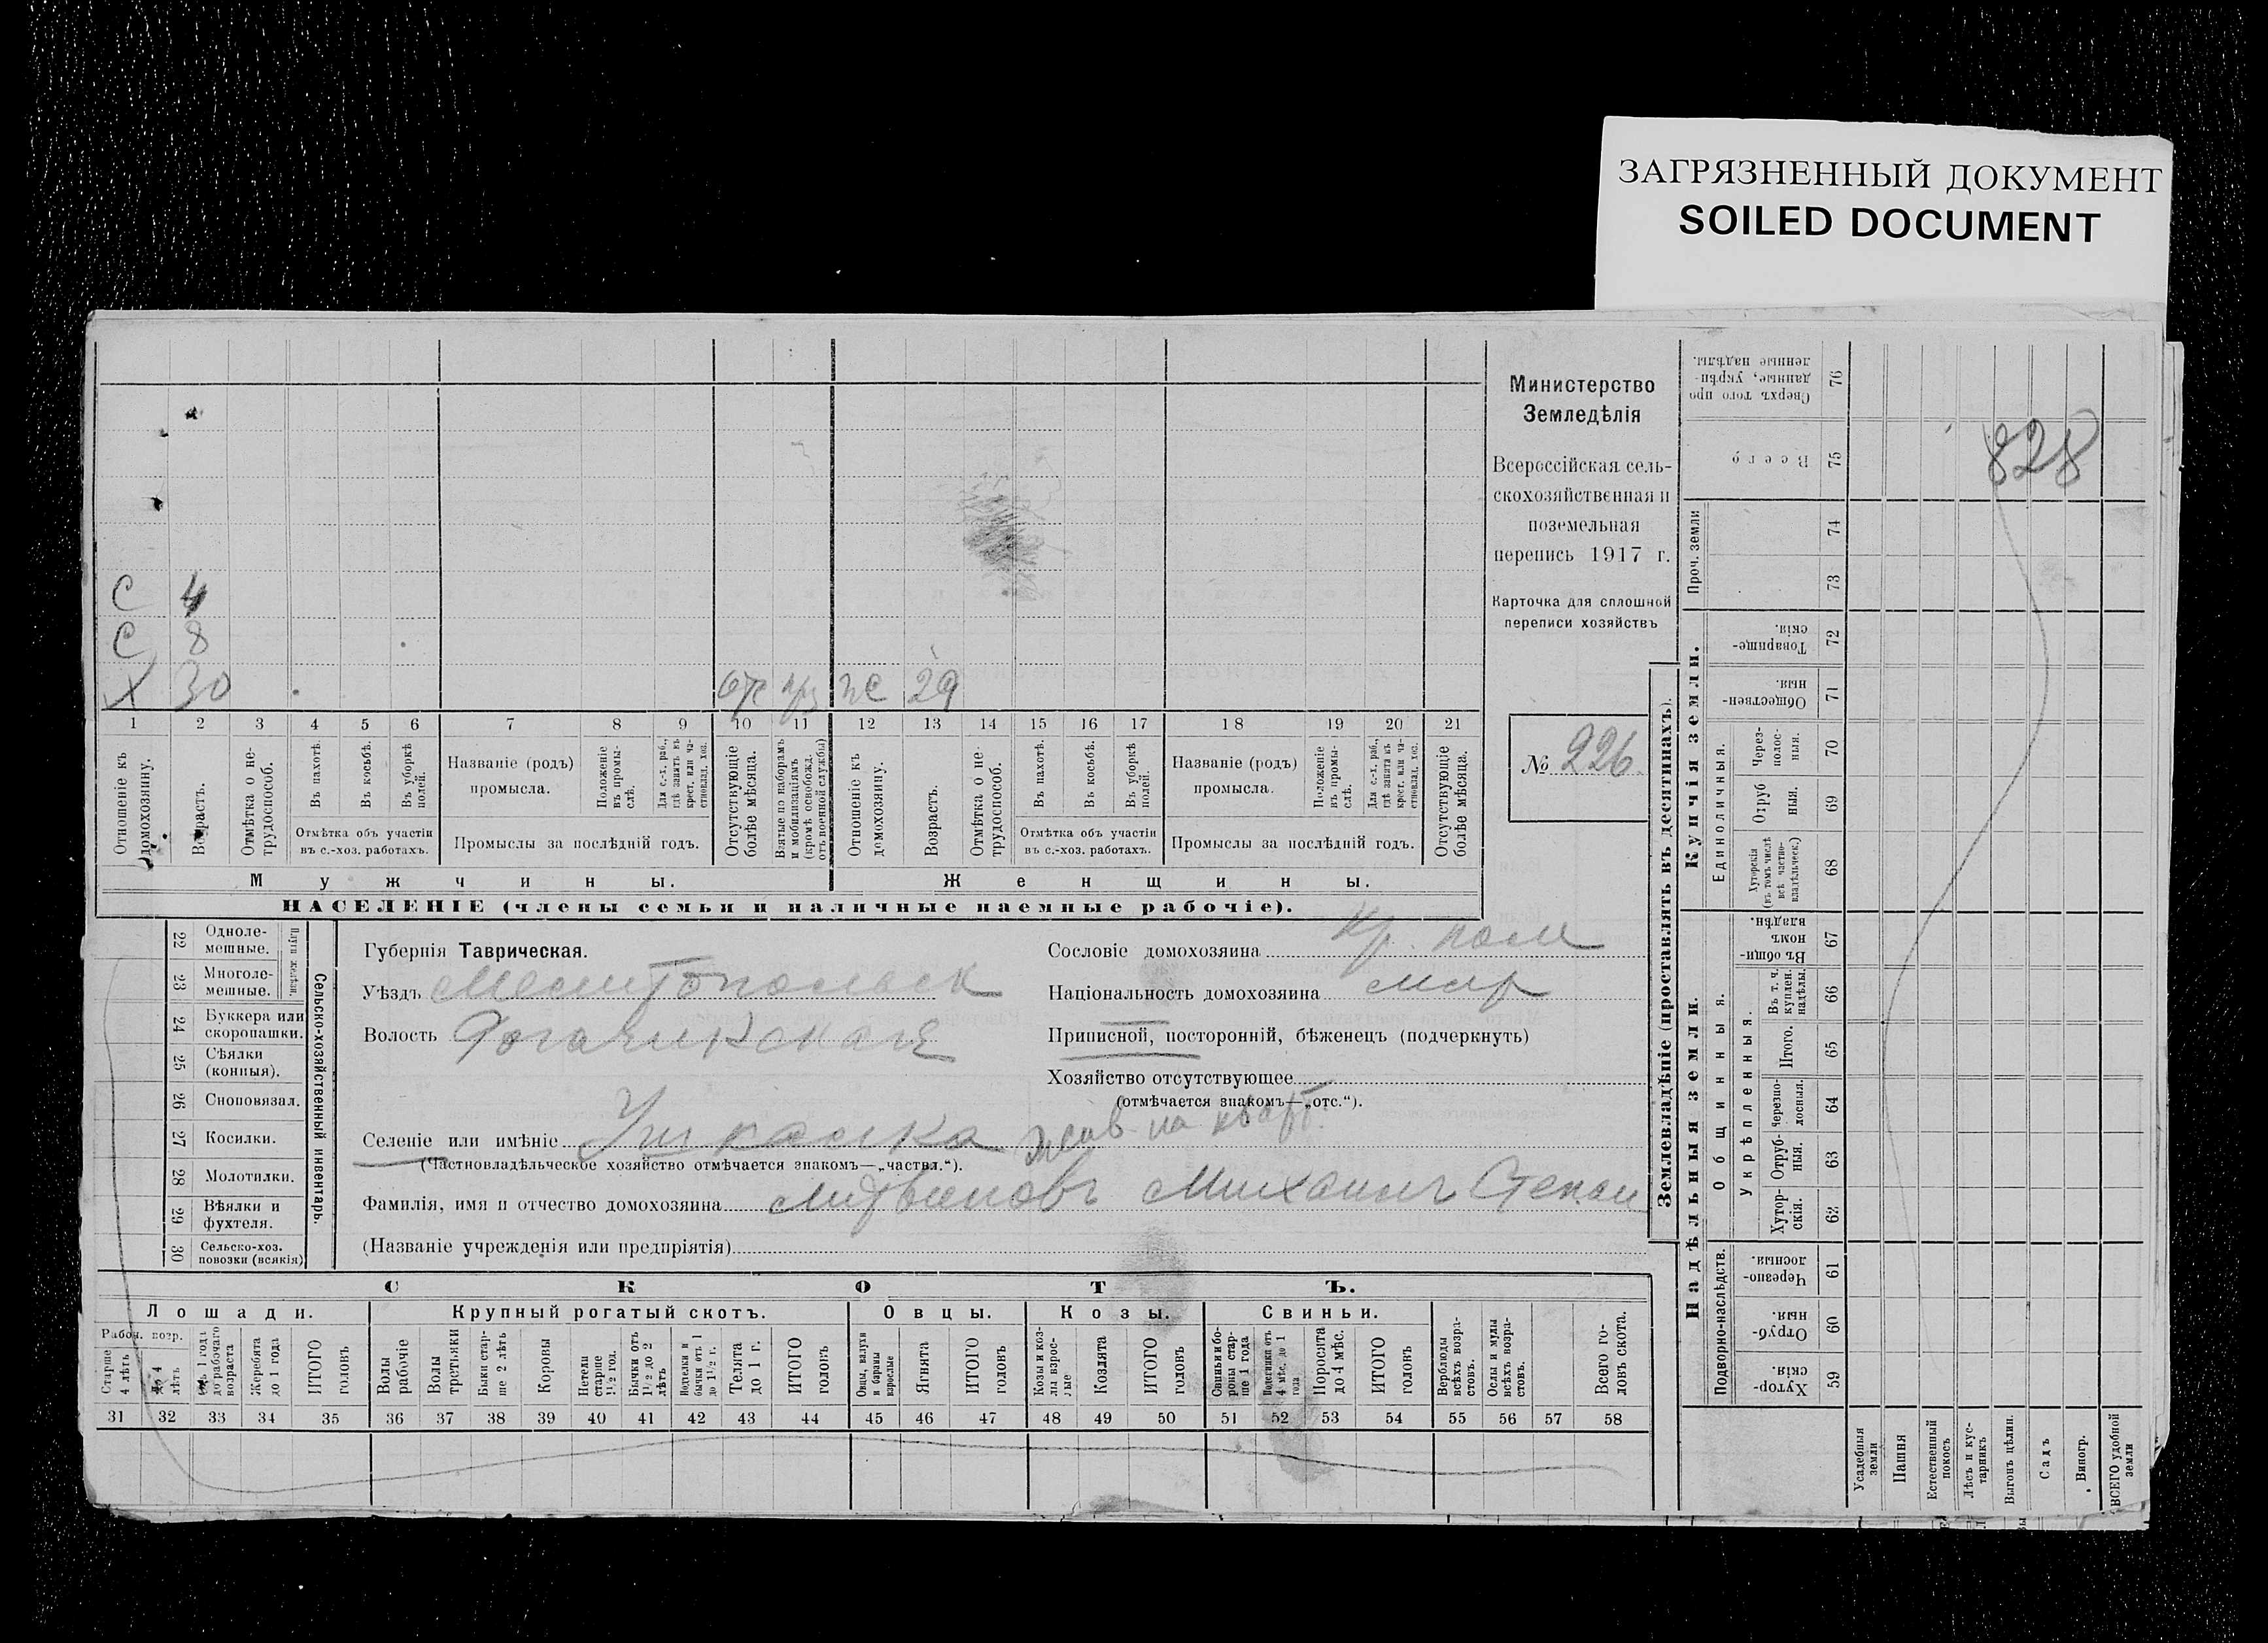 ЗАГРЯЗНЕННЫЙ ДОКУМЕНТ
SOILED DOCUMENT
828
С 4
С 8
Х 30 отс ж 29
1 2 3 4 5 6 7 8 9 10 11 12 13 14 15 16 17 18 19 20 21
Отношеніе къ домохозяину.
Возрастъ.
Отмѣтка о не-трудоспособ.
Въ пахотѣ.
Въ косьбѣ.
Въ уборкѣ полей.
Отмѣтка объ участіи
въ с.-хоз. работахъ.
Названіе (родъ)
промысла.
Положеніе въ промы-слѣ.
Для с.-х. раб., гдѣ занятъ въ крест. или ча-стновлад. хоз.
Промыслы за послѣдній годъ.
Отсутствующіе болѣе мѣсяца.
Взятые по наборамъ и мобилизаціямъ (кромѣ освобожд. отъ военной службы)
Отношеніе къ домохозяину.
Возрастъ.
Отмѣтка о не-трудоспособ.
Въ пахотѣ.
Въ косьбѣ.
Въ уборкѣ полей.
Отмѣтка объ участіи
въ с.-хоз. работахъ.
Названіе (родъ)
промысла.
Положеніе въ промы-слѣ.
Для с.-х. раб., гдѣ занята въ крест. или ча-стновлад. хоз.
Промыслы за послѣдній годъ.
Отсутствующіе болѣе мѣсяца.
Мужчины.
Женщины.
НАСЕЛЕНІЕ (члены семьи и наличные наемные рабочіе).
Министерство
Земледѣлія
Всероссійская сель-
скохозяйственная и
поземельная
перепись 1917 г.
Карточка для сплошной
переписи хозяйствъ
№ 226
22 Одноле-мешные.
23 Многоле-мешные.
Плуги желѣзн.
24 Буккера или скоропашки.
25 Сѣялки (конныя).
26 Сноповязал.
27 Косилки.
28 Молотилки.
29 Вѣялки и фухтеля.
30 Сельско-хоз. повозки (всякія)
Сельско-хозяйственный инвентарь.
Губернія Таврическая.
Уѣздъ Мелитопольск
Волость Рогачикская
Селеніе или имѣніе Ушкалка жив на кварт.
(Частновладѣльческое хозяйство отмѣчается знакомъ—„частвл.“).
Фамилія, имя и отчество домохозяина Литвиновъ Михаилъ Степан
(Названіе учрежденія или предпріятія)
Сословіе домохозяина
Національность домохозяина
Приписной, посторонній, бѣженецъ (подчеркнуть)
Хозяйство отсутствующее
(отмѣчается знакомъ—„отс.“).
СКОТЪ.
Лошади. Крупный рогатый скотъ. Овцы. Козы. Свиньи.
Рабоч. возр.
Старше 4 лѣтъ
До 4 лѣтъ
Отъ 1 года до рабочаго возраста
Жеребята до 1 года
ИТОГО головъ
Волы рабочіе
Волы третьяки
Быки стар-ше 2 лѣтъ
Коровы
Нетели старше 1½ год.
Бычки отъ 1½ до 2 лѣтъ
Нетелки и бычки отъ 1 до 1½ г.
Телята до 1 г.
ИТОГО головъ
Овцы, валухи и бараны взрослые
Ягнята
ИТОГО головъ
Козы и коз-лы взрос-лые
Козлята
ИТОГО головъ
Свиньи и бо-ровы стар-ше 1 года
Подсвинки отъ 4 мѣс. до 1 года
Поросята до 4 мѣс.
ИТОГО головъ
Верблюды всѣхъ возра-стовъ.
Ослы и мулы всѣхъ возра-стовъ.
Всего го-ловъ скота.
31 32 33 34 35 36 37 38 39 40 41 42 43 44 45 46 47 48 49 50 51 52 53 54 55 56 57 58
Землевладѣніе (проставлять въ десятинахъ).
Купчія земли.
Надѣльныя земли.
Проч. земли
Единоличныя.
Общинныя.
Укрѣпленныя.
Подворно-наслѣдств.
Сверхъ того про данные, укрѣп-ленные надѣлы. 76
Всего 75
74
73
Товарище-скія. 72
Обществен-ныя. 71
Через-полос-ныя. 70
Отруб ныя. 69
Хуторскія (въ томъ числѣ всѣ частно-владѣльческ.) 68
Въ общи-номъ владѣн. 67
Въ т. ч. куплен. надѣлы. 66
Итого. 65
черезпо-лосныя. 64
Отруб-ныя. 63
Хутор-скія. 62
Черезпо-лосныя. 61
Отруб-ныя. 60
Хутор-скія. 59
Усадебныя земли
Пашня
Естественный покосъ
Лѣсъ и кус-тарникъ
Выгонъ цѣлин.
Садъ
Виногр.
ВСЕГО удобной земли